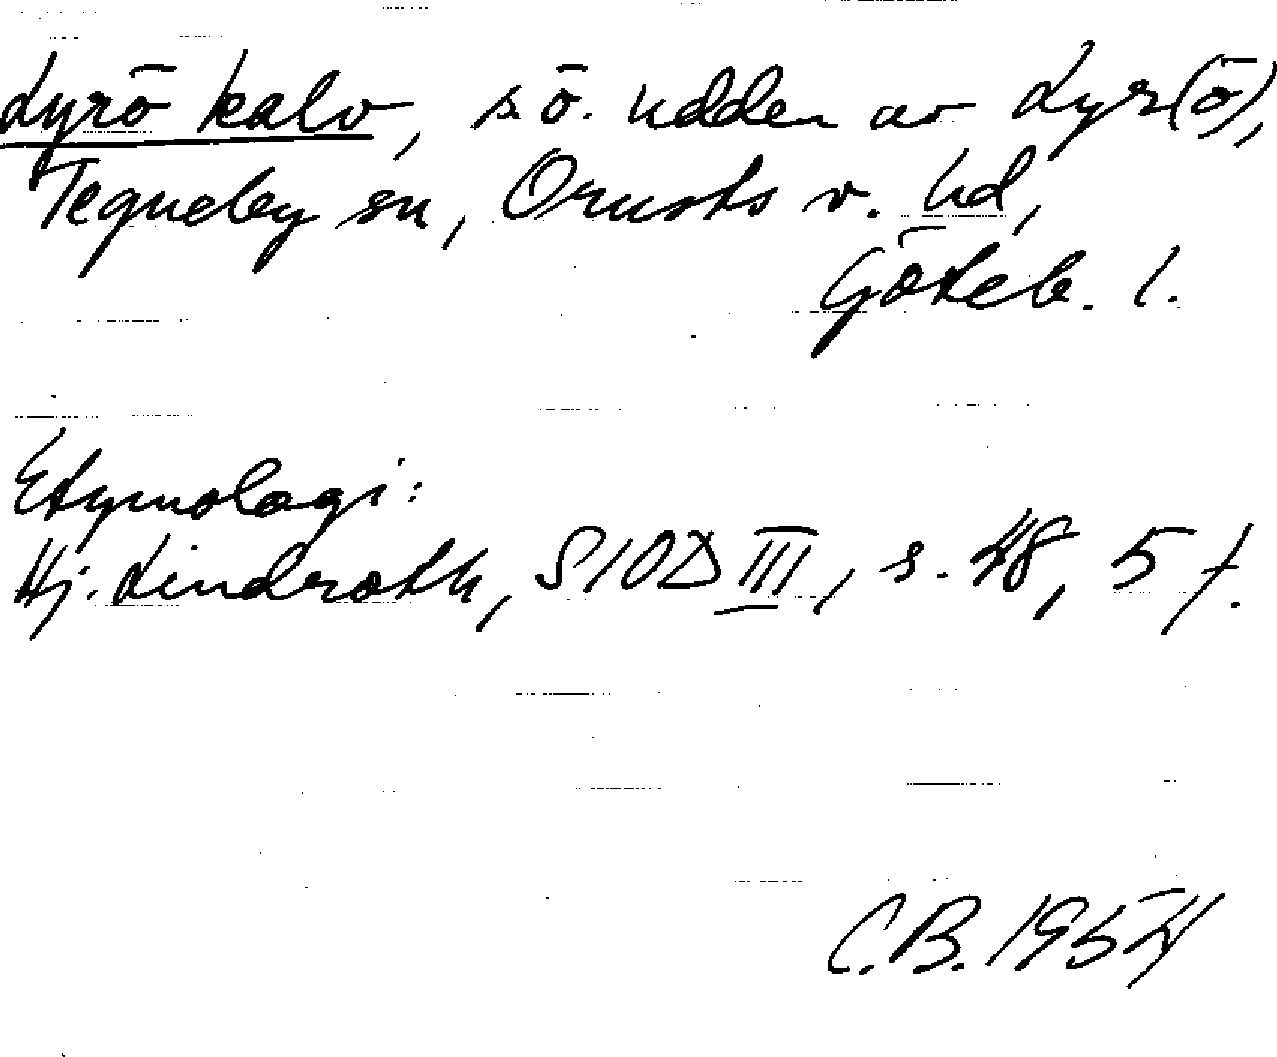 Lyrö kalv, s.ö. udden av Lyr(ö),
Tegneby sn, Orusts v. hd,
Göteb. l.
Etymologi:
Hj. Lindroth, SIOD III, s. 48, 57.
C.B. 1954